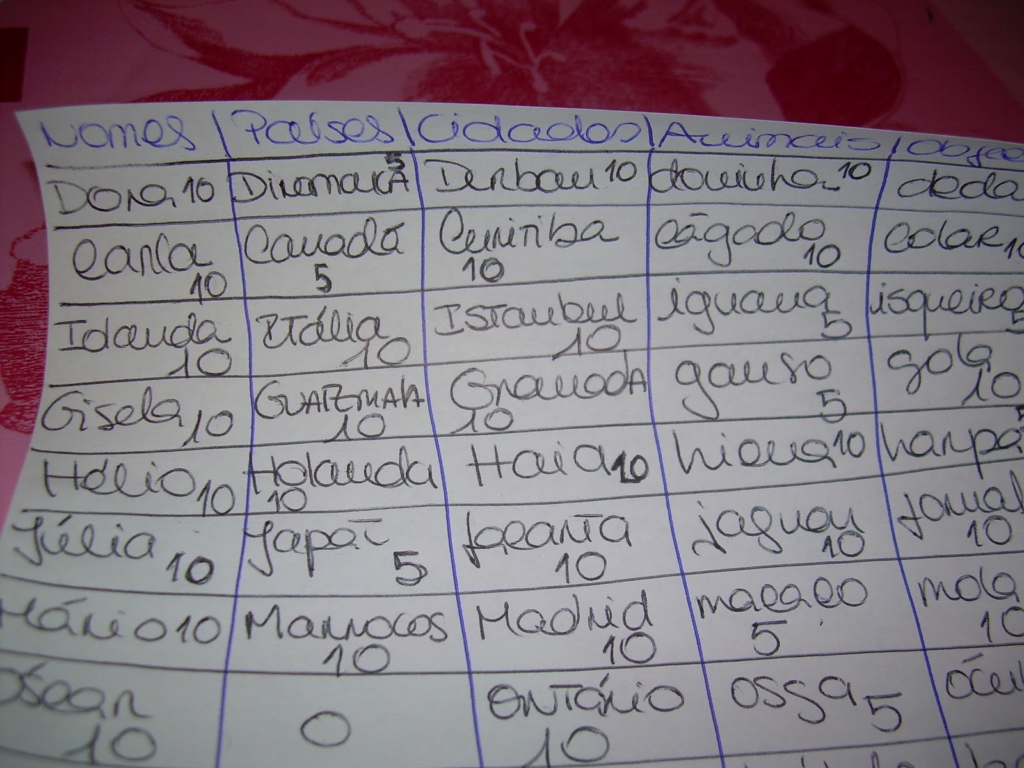 Nomes | Países | Cidades | Animais | Obje
Dora 10 Dinamarca 5 Durban 10 doninha 10 deda
Carla 10 Canadá 5 Curitiba 10 cágado 10 colar 10
Iolanda 10 Itália 10 Istanbul 10 iguana 5 isqueiro 5
Gisela 10 GUATEMALA 10 Granada 10 ganso 5 gola 10
Hélio 10 Holanda 10 Haia 10 hiena 10 harpa 5
Júlia 10 Japão 5 Jacarta 10 jaguar 10 jornal 10
Mário 10 Marrocos 10 Madrid 10 macaco 5 mola 10
Oscar 10 0 Ontário 10 ossga 5 ócul